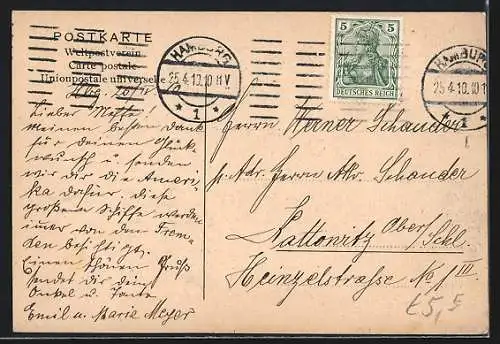 POSTKARTE
Weltpostverein
Carte postale
Unionpostale universelle
HAMBURG
25.4.10.10 V
* 1 *
5 5
DEUTSCHES REICH
HAMBURG
25.4.10.10
* 1
Hbg.
Lieber Neffe!
Meinen besten Dank
für deinen Glück
wunsch u senden
wir dir die Ameri
ka daher. diese
großen Schiffe werden
imer von den Frem
den besichtigt.
Einen schönen Gruß
sendet dir dein
Onkel u. Tante
Emil u. Marie Meyer
Herrn Werner Schauder
p. Adr. Herrn Alw. Schauder
Kattowitz Ober/Schl.
Heinzelstrasse No 1 III